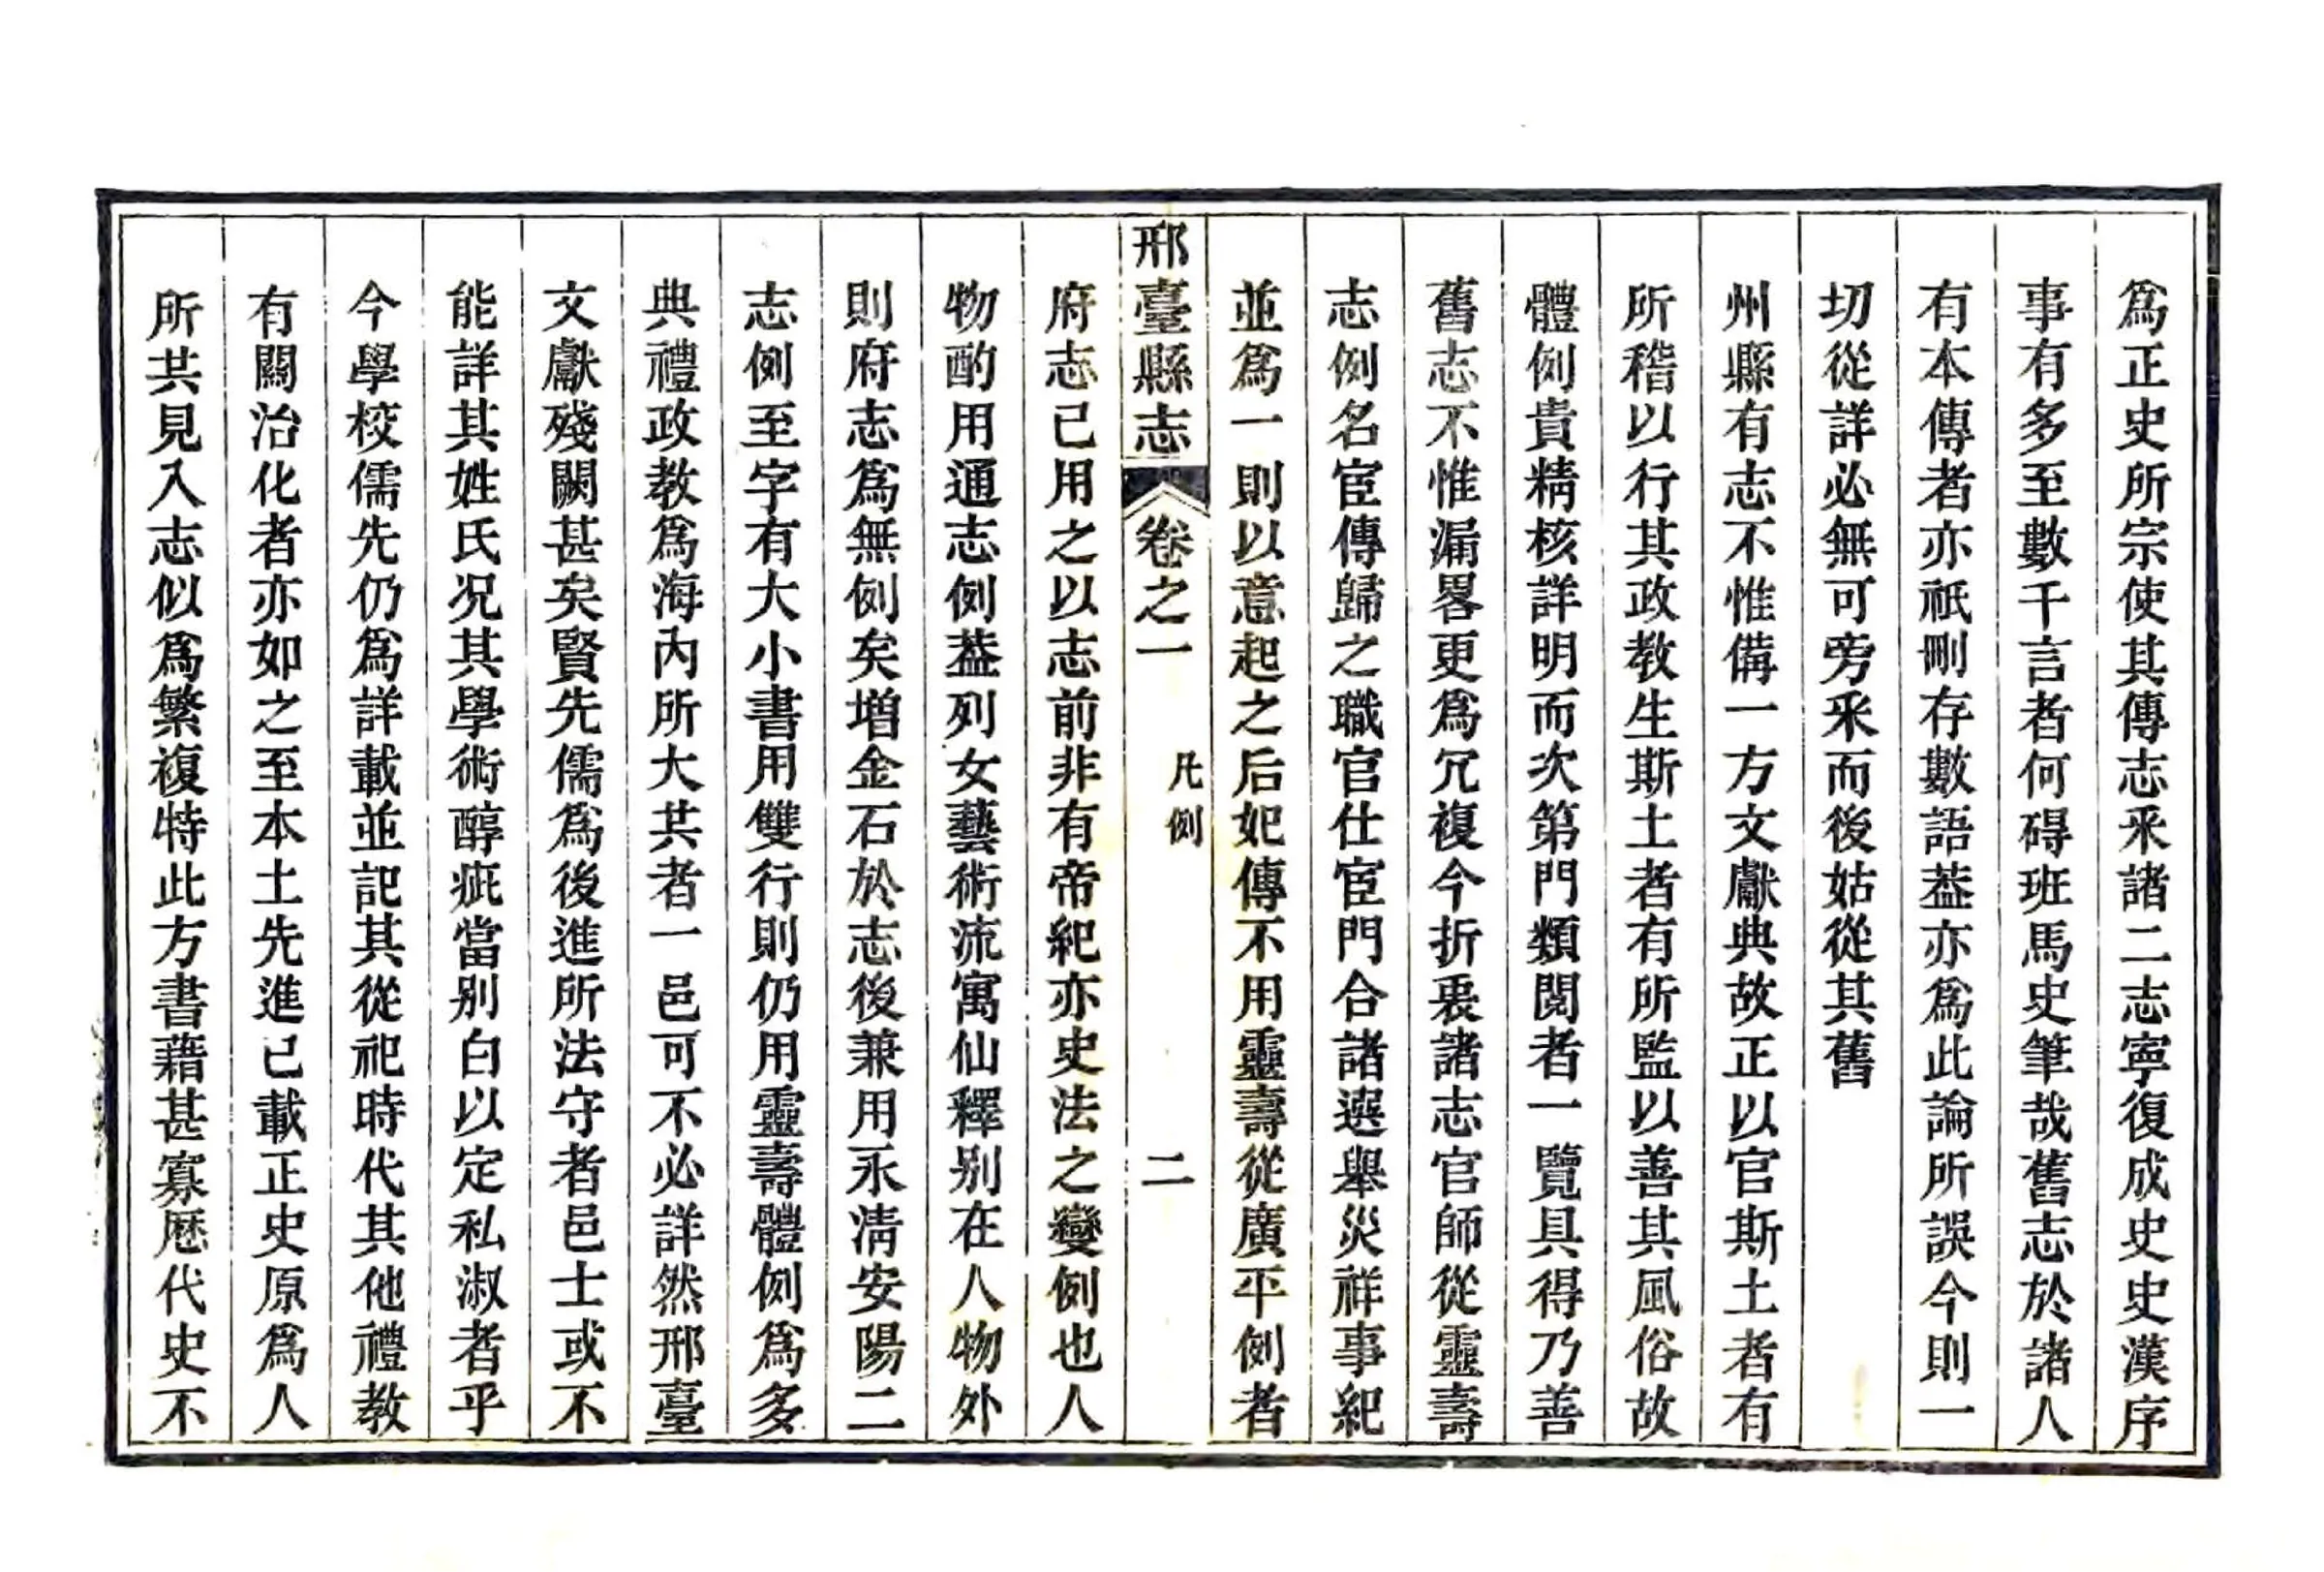 爲正史所宗使其傳志采諸二志寧復成史史漢序
事有多至數千言者何碍班馬史筆哉舊志於諸人
有本傳者亦祇刪存數語葢亦爲此論所誤今則一
切從詳必無可旁采而後姑從其舊
州縣有志不惟備一方文獻典故正以官斯土者有
所稽以行其政教生斯土者有所監以善其風俗故
體例貴精核詳明而次第門類閱者一覽具得乃善
舊志不惟漏畧更爲冗複今折衷諸志官師從靈壽
志例名宦傳歸之職官仕宦門合諸選舉災祥事紀
並爲一則以意起之后妃傳不用靈壽從廣平例者
邢臺縣志 卷之一 凡例 二
府志已用之以志前非有帝紀亦史法之變例也人
物酌用通志例葢列女藝術流寓仙釋别在人物外
則府志爲無例矣增金石於志後兼用永淸安陽二
志例至字有大小書用雙行則仍用靈壽體例爲多
典禮政教爲海內所大共者一邑可不必詳然邢臺
文獻殘闕甚矣賢先儒爲後進所法守者邑士或不
能詳其姓氏况其學術醇疵當别白以定私淑者乎
今學校儒先仍爲詳載並記其從祀時代其他禮教
有關治化者亦如之至本土先進已載正史原爲人
所共見入志似爲繁複特此方書藉甚寡歷代史不